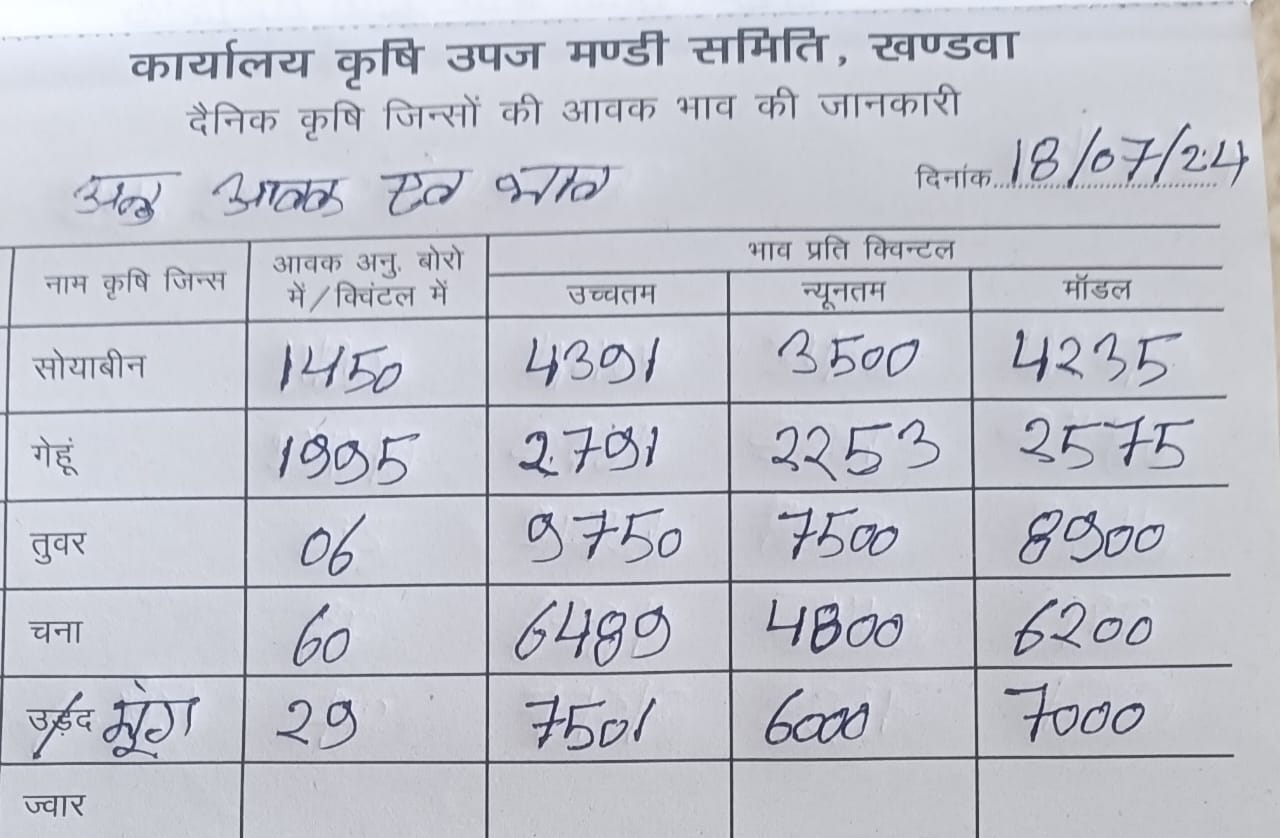 कार्यालय कृषि उपज मण्डी समिति, खण्डवा
दैनिक कृषि जिन्सों की आवक भाव की जानकारी
अनु आवक एव भाव
दिनांक 18/07/24
नाम कृषि जिन्स आवक अनु. बोरो में/क्विंटल में भाव प्रति क्विन्टल
उच्चतम न्यूनतम मॉडल
सोयाबीन 1450 4391 3500 4235
गेहूं 1995 2791 2253 2575
तुवर 06 9750 7500 8900
चना 60 6489 4800 6200
उड़द मूंग 29 7501 6000 7000
ज्वार